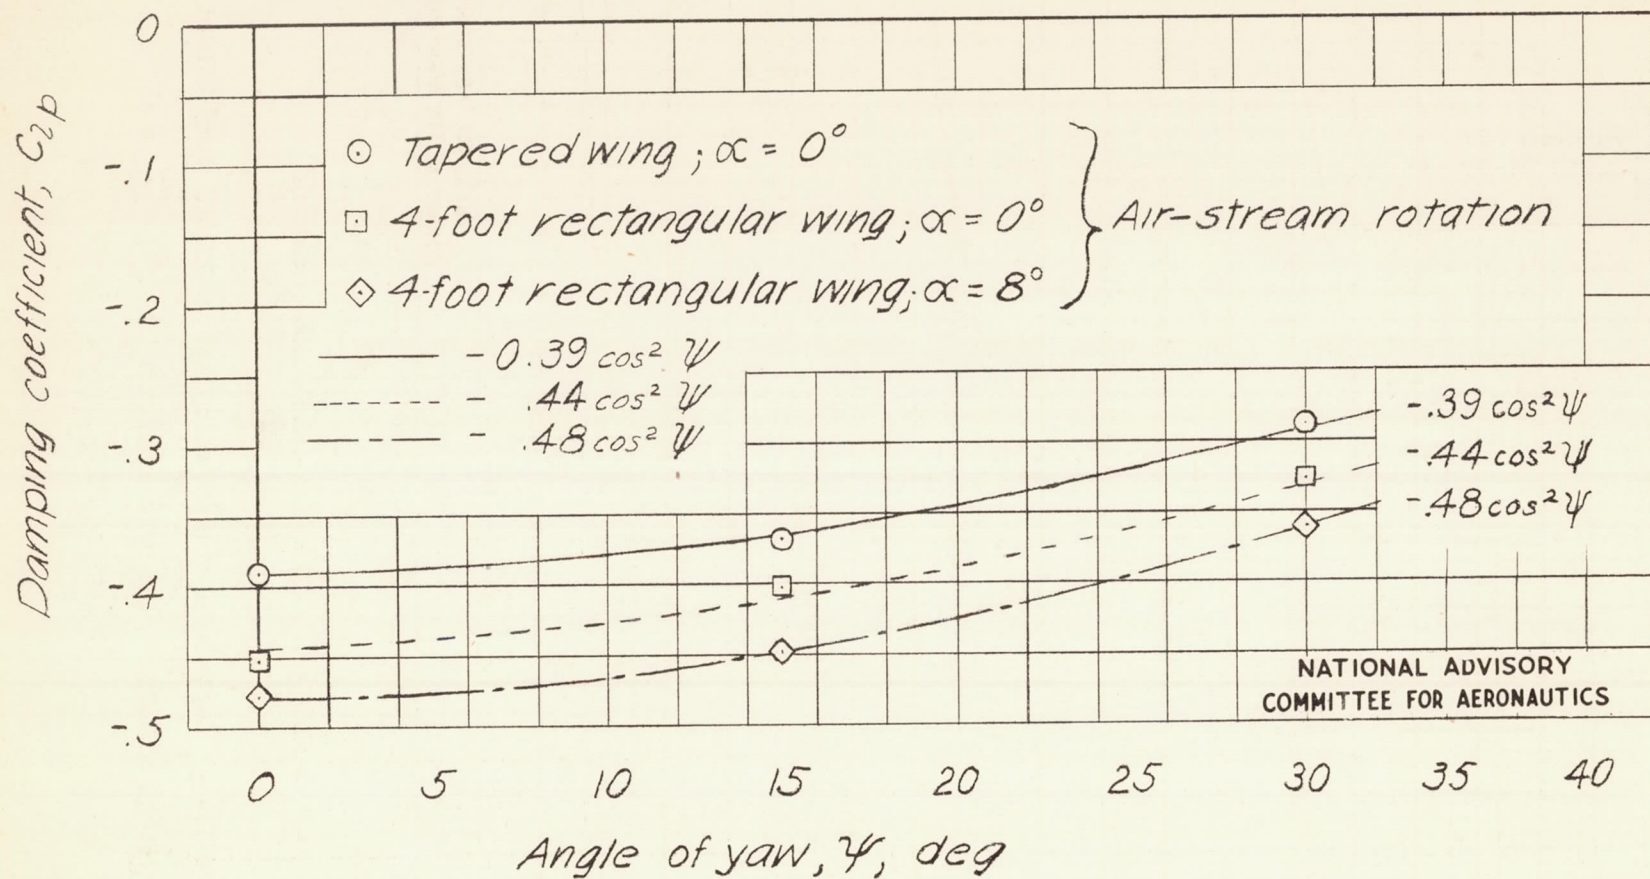 0
-.1
-.2
-.3
-.4
-.5
Damping coefficient, C_lp
⊙ Tapered wing ; α = 0°
⊡ 4-foot rectangular wing; α = 0°
◇ 4-foot rectangular wing; α = 8°
Air-stream rotation
- 0.39 cos² ψ
- .44 cos² ψ
- .48 cos² ψ
-.39 cos² ψ
-.44 cos² ψ
-.48 cos² ψ
NATIONAL ADVISORY
COMMITTEE FOR AERONAUTICS
0 5 10 15 20 25 30 35 40
Angle of yaw, ψ, deg